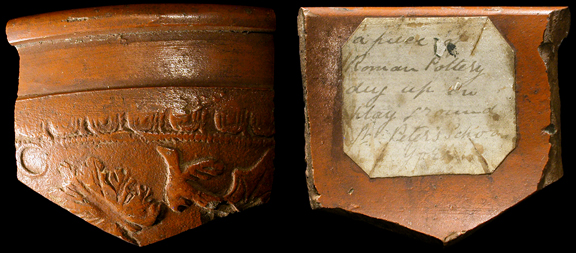 a piece of
Roman Pottery
dug up in
play ground
St Peter's School
York